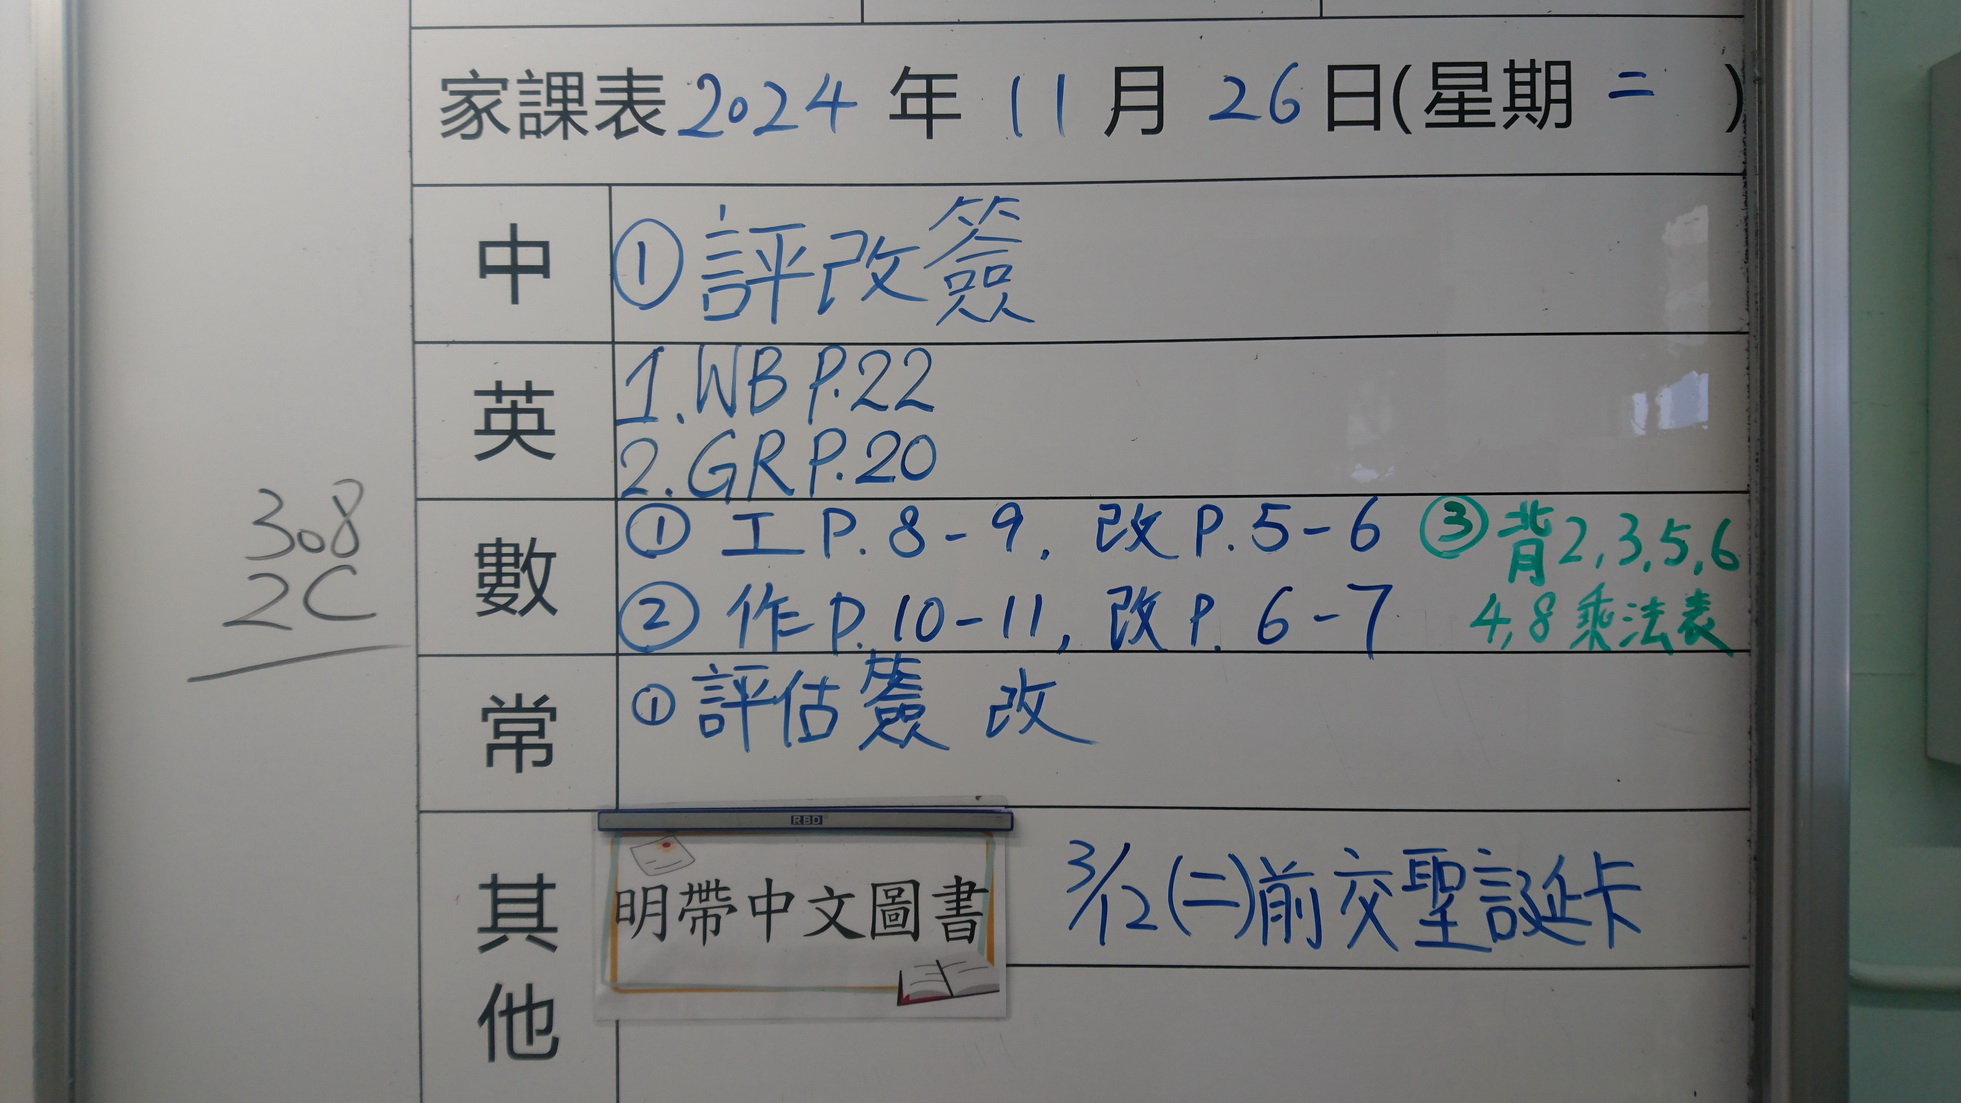 家課表 2024 年 11 月 26 日(星期 二 )
中
① 評改簽
英
1. WB P.22
2. GR P.20
308
2C
數
① 工 P. 8-9, 改 P. 5-6
② 作 P. 10-11, 改 P. 6-7
③ 背 2, 3, 5, 6
4, 8 乘法表
常
① 評估簽 改
其他
RBD
明帶中文圖書
3/12 (二) 前交聖誕卡